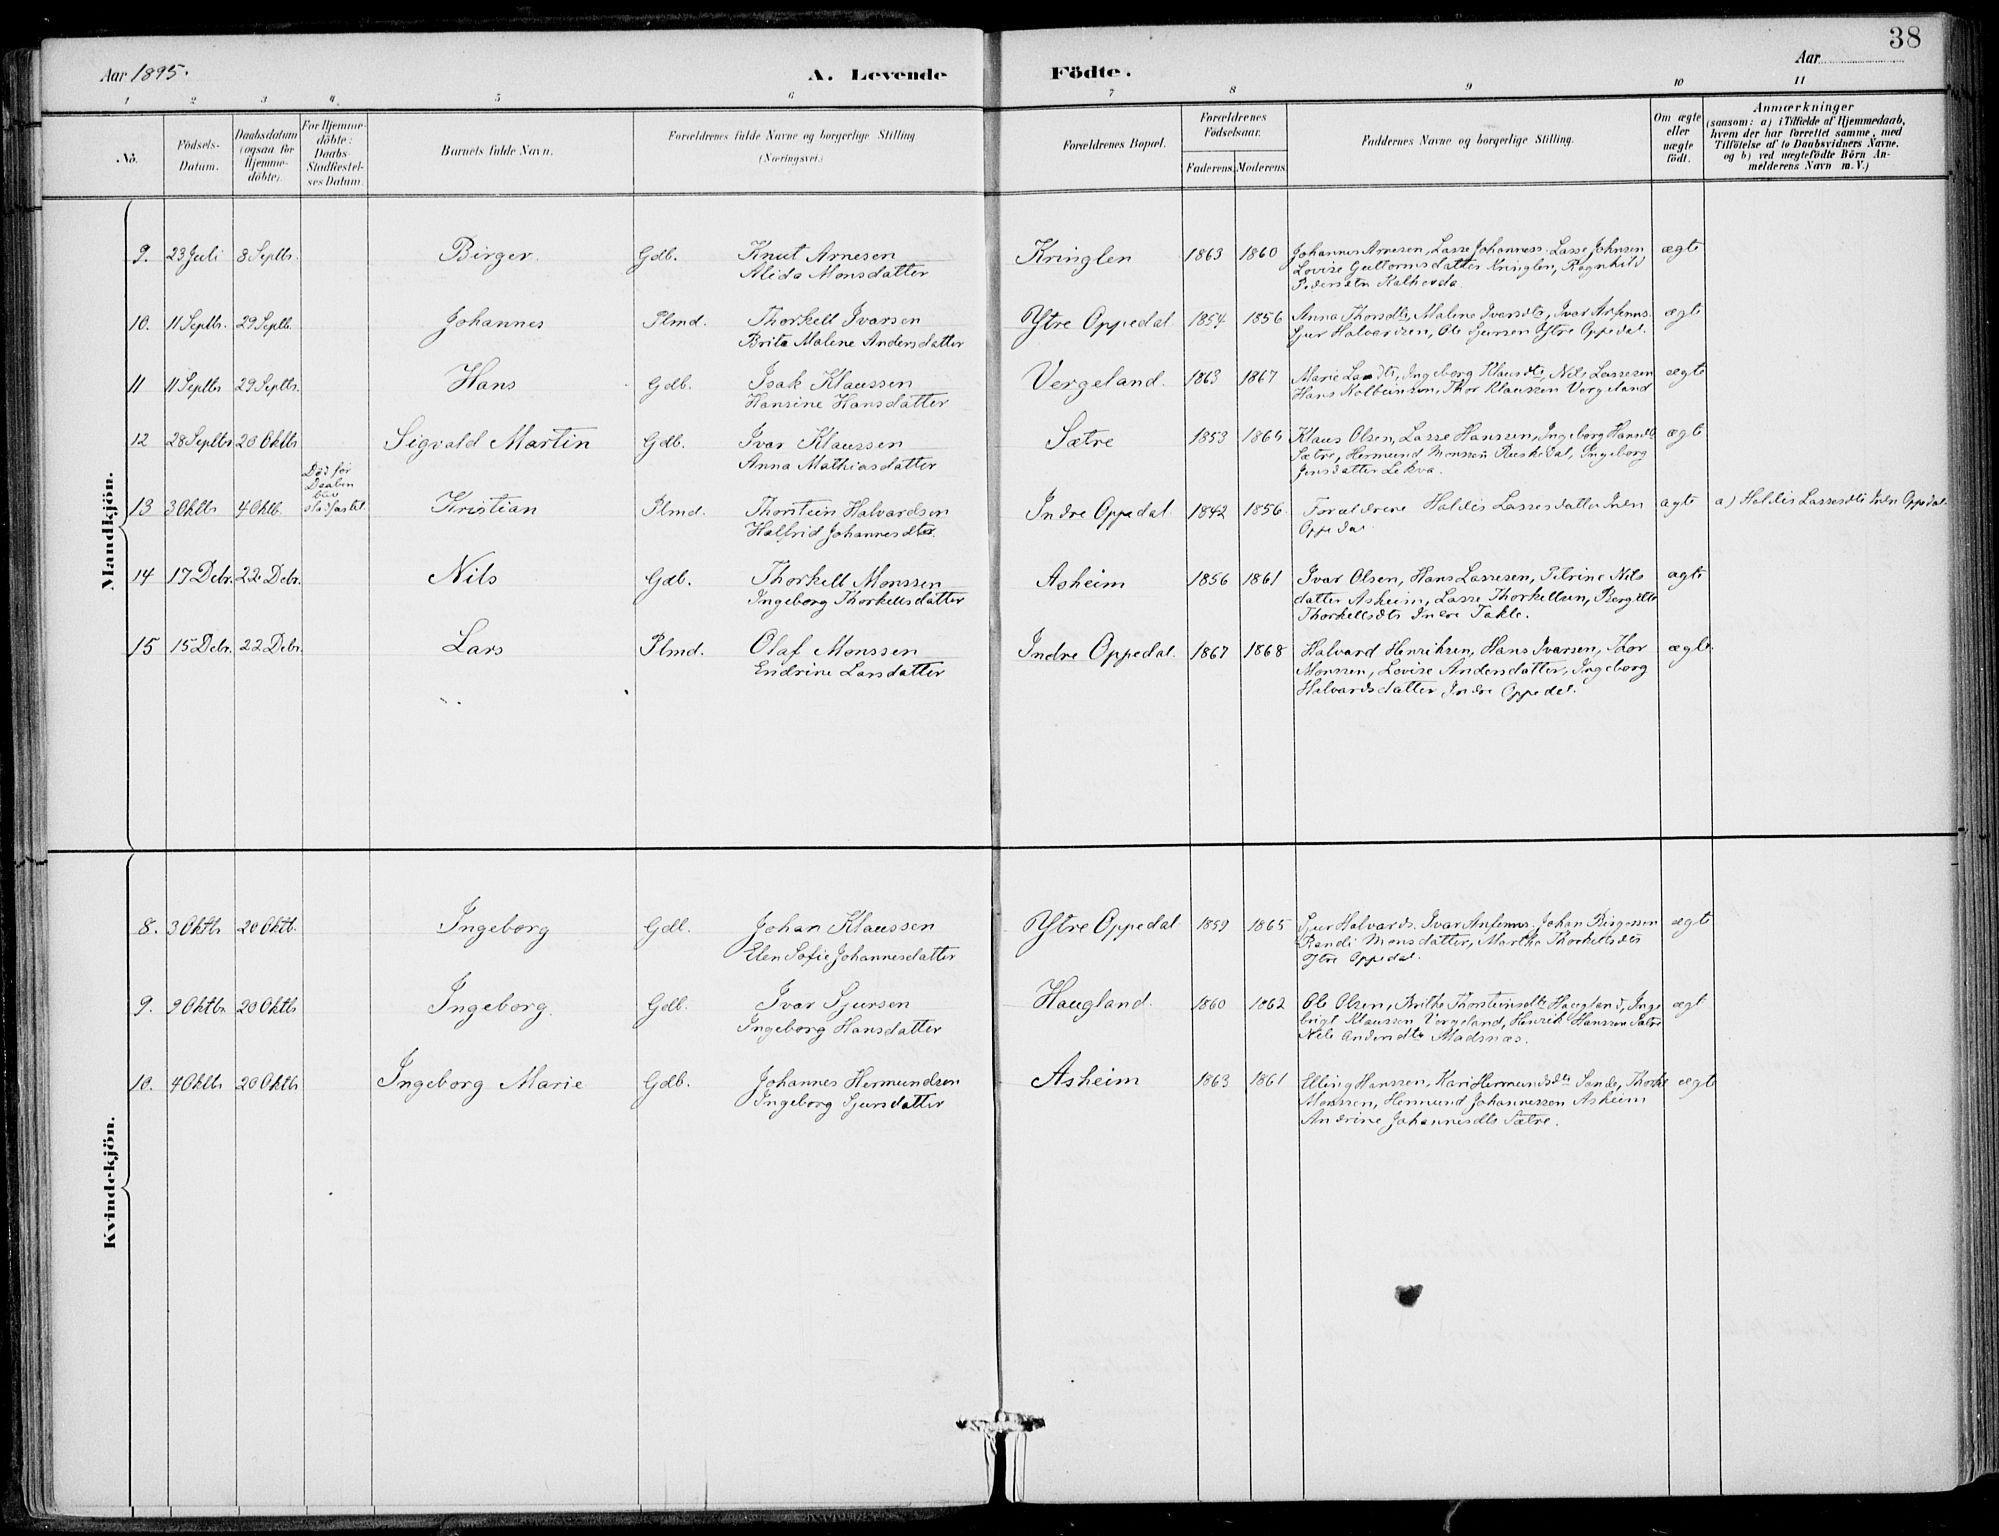 38
Aar 1895.
A. Levende Födte.
Aar
1 2 3 4 5 6 7 8 9 10 11
No.
Födsels-Datum.
Daabsdatum (ogsaa for Hjemme-döbte).
For Hjemme-döbte: Daabs-Stadfæstel-ses Datum.
Barnets fulde Navn.
Forældrenes fulde Navne og borgerlige Stilling (Næringsvei.)
Forældrenes Bopæl.
Forældrenes Födselsaar.
Faderens. Moderens.
Faddernes Navne og borgerlige Stilling.
Om ægte eller uægte födt.
Anmærkninger (saasom: a) i Tilfælde af Hjemmedaab, hvem der har forrettet samme, med Tilföielse af to Daabsvidners Navne, og b) ved uægtefödte Börn An-melderens Navn m. V.)
Mandkjön.
9. 23 Juli 8 Septbr. Birger. Gdb. Knut Arnesen Kringlen 1863 1860 Johannes Arnesen, Lasse Johanness. Lasse Johnsen ægte
Alida Monsdatter Lovise Guttormsdatter Kringlen, Ragnhild
Pedersdtr Kalhovda.
10. 11 Septbr. 29 Septb. Johannes Plmd. Thorkell Ivarsen Ytre Oppedal 1854 1856 Anna Thorsdtr, Malene Ivarsdtr, Ivar Anfinns. ægte
Brita Malene Andersdatter Sjur Halvardsen, Ole Sjursen Ytre Oppedal.
11 11 Septbr 29 Septbr. Hans Gdb. Isak Klaussen Vergeland. 1863 1867 Marie Dtr, Ingeborg Klausdtr, Nils Lassesen ægte
Hansine Hansdatter Hans Kolbeinsen, Thor Klaussen Vergeland
12 28 Septbr 20 Oktbr Sigvald Martin Gdb. Ivar Klaussen Sætre 1853 1865 Klaus Olsen, Lasse Hanssen, Ingeborg Hansdtr ægte
Anna Mathiasdatter Sætre, Hermund Monssen Ruskedal, Ingeborg
Jensdatter Lekva.
Död för
Daaben
blev
stadfæstet.
13 3 Oktbr 4 Oktb. Kristian Plmd. Thorstein Halvardsen Indre Oppedal 1842 1856. Forældrene Haldis Lassesdatter Indre ægte a) Haldis Lassesdtr Indre Oppedal.
Halfrid Johannesdtr. Oppedal
14 17 Debr. 22 Debr. Nils Gdb. Thorkell Monssen Asheim 1856 1861 Ivar Olsen, Hans Lassesen, Petrine Nils ægte
Ingeborg Thorkellsdatter datter Asheim, Lasse Thorkellsen, Bergitte
Thorkellsdtr Indre Takle.
15 15 Debr. 22 Debr. Lars Plmd. Olaf Monssen Indre Oppedal. 1867 1868 Halvard Henriksen, Hans Ivarsen, Thor ægte.
Endrine Larsdatter Monssen, Lovise Andersdatter, Ingeborg
Halvardsdatter Indre Oppedal.
Kvindekjön.
8. 3 Oktbr 20 Oktb. Ingeborg Gdb. Johan Klaussen Ytre Oppedal 1859 1865 Sjur Halvards. Ivar Anfinns. Johan Birgessen ægt
Elen Sofie Johannesdatter Randi Monsdatter, Marthe Thorkellsdtr
Ytre Oppedal.
9. 9 Oktbr 20 Oktb Ingeborg. Gdb. Ivar Sjursen Haugland. 1860 1862 Ole Olsen, Brithe Thorsteinsdtr Haugland, Inge ægt
Ingeborg Hansdatter brigt Klaussen Vergeland, Henrik Hanssen Sætre
Nils Andersdtr Madsnæs.
10. 4 Oktbr 20 Oktb Ingeborg Marie Gdb. Johannes Hermundsen Asheim 1863 1861 Elling Hanssen, Kari Hermundsdtr Sande, Thorke ægt
Ingeborg Sjursdatter Monssen, Hermund Johannessen Asheim
Andrine Johannesdtr Sætre.